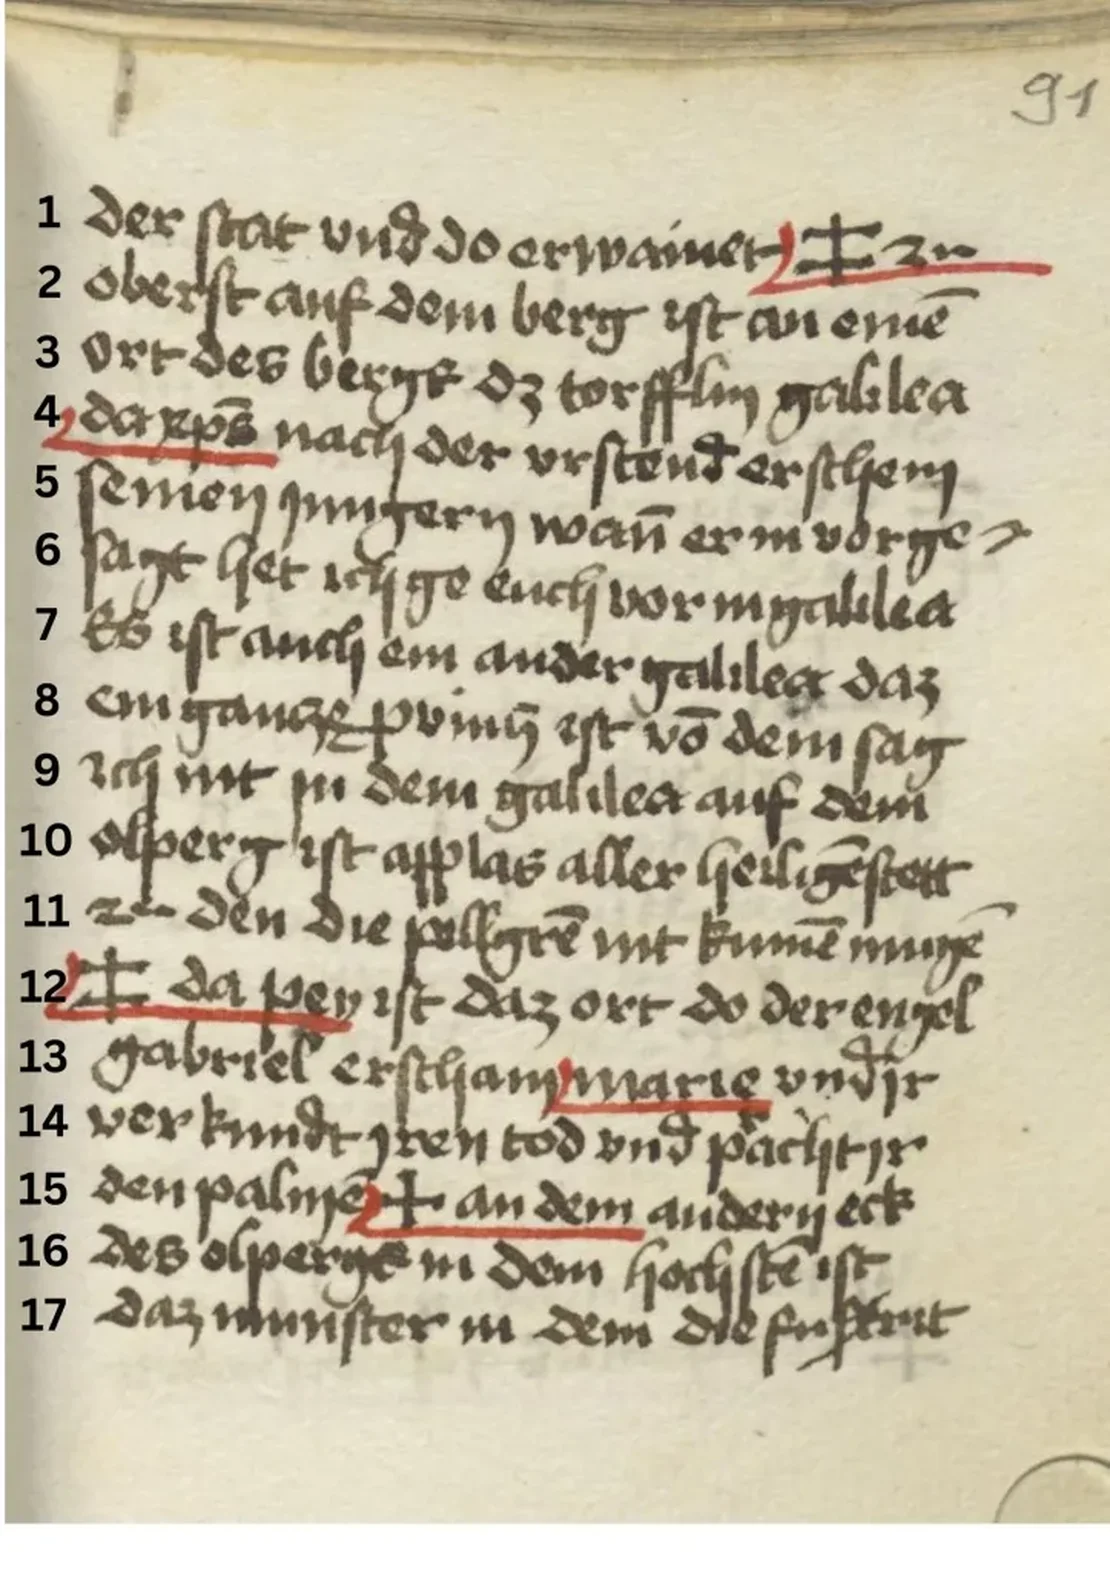 91
1 der stat vnd̄ do erwainet ‡ zu
2 oberst auf dem berg ist an einē
3 ort des bergs dz torfflin galilea
4 da xp̄s nach der vrstend̄ erschein
5 seinen jungern wan̄ er in vorge
6 sagt het ich ge euch vor in galilea
7 Es ist auch ein ander galilea daz
8 ein gancze ist vō dem sag
9 ich nit in dem galilea auf dem
10 olperg ist applas aller heiligēstett
11 zu den die pillgrē nit kumē mugē
12 ‡ da pey ist daz ort do der engel
13 gabriel erscham marie vnd̄ ir
14 verkundt jren tod vnd̄ pracht ir
15 den palmē + an dem andern eck
16 des olpergs in dem hochstē ist
17 daz munster in dem die fustrit